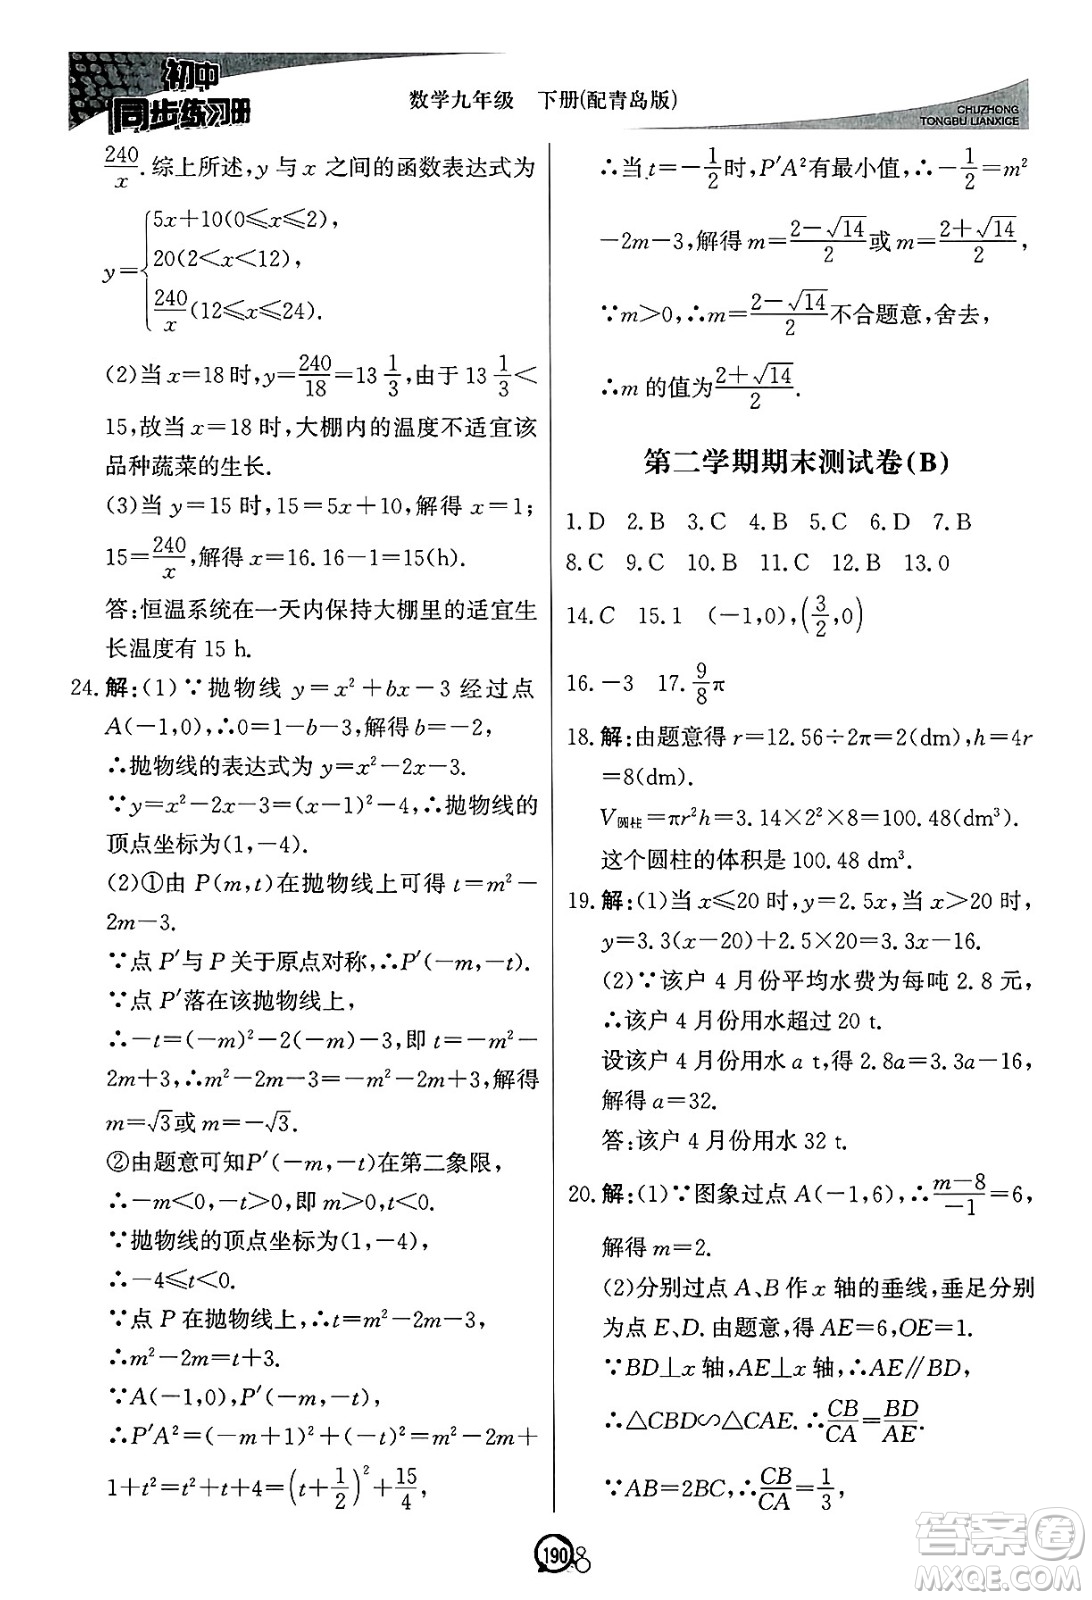 初中
同步练习册
数学九年级 下册(配青岛版)
CHUZHONG
TONGBU LIANXICE
240/x.综上所述,y 与 x 之间的函数表达式为
y={5x+10(0≤x≤2),
20(2<x<12),
240/x(12≤x≤24).
(2)当 x=18 时,y=240/18=13 1/3,由于 13 1/3<
15,故当 x=18 时,大棚内的温度不适宜该
品种蔬菜的生长.
(3)当 y=15 时,15=5x+10,解得 x=1;
15=240/x,解得 x=16.16-1=15(h).
答:恒温系统在一天内保持大棚里的适宜生
长温度有 15 h.
24.解:(1)∵抛物线 y=x²+bx-3 经过点
A(-1,0),∴0=1-b-3,解得 b=-2,
∴抛物线的表达式为 y=x²-2x-3.
∵y=x²-2x-3=(x-1)²-4,∴抛物线的
顶点坐标为(1,-4).
(2)①由 P(m,t)在抛物线上可得 t=m²-
2m-3.
∵点 P′与 P 关于原点对称,∴P′(-m,-t).
∵点 P′落在该抛物线上,
∴-t=(-m)²-2(-m)-3,即 t=-m²-
2m+3,∴m²-2m-3=-m²-2m+3,解得
m=√3或 m=-√3.
②由题意可知P′(-m,-t)在第二象限,
∴-m<0,-t>0,即 m>0,t<0.
∵抛物线的顶点坐标为(1,-4),
∴-4≤t<0.
∵点 P 在抛物线上,∴t=m²-2m-3,
∴m²-2m=t+3.
∵A(-1,0),P′(-m,-t),
∴P′A²=(-m+1)²+(-t)²=m²-2m+
1+t²=t²+t+4=(t+1/2)²+15/4,
∴当 t=-1/2时,P′A²有最小值,∴-1/2=m²
-2m-3,解得 m=(2-√14)/2或 m=(2+√14)/2,
∵m>0,∴m=(2-√14)/2不合题意,舍去,
∴m 的值为(2+√14)/2.
第二学期期末测试卷(B)
1.D 2.B 3.C 4.B 5.C 6.D 7.B
8.C 9.C 10.B 11.C 12.B 13.0
14.C 15.1 (-1,0),(3/2,0)
16.-3 17.9/8π
18.解:由题意得 r=12.56÷2π=2(dm),h=4r
=8(dm).
V圆柱=πr²h=3.14×2²×8=100.48(dm³).
这个圆柱的体积是 100.48 dm³.
19.解:(1)当 x≤20 时,y=2.5x,当 x>20 时,
y=3.3(x-20)+2.5×20=3.3x-16.
(2)∵该户 4 月份平均水费为每吨 2.8 元,
∴该户 4 月份用水超过 20 t.
设该户 4 月份用水 a t,得 2.8a=3.3a-16,
解得 a=32.
答:该户 4 月份用水 32 t.
20.解:(1)∵图象过点 A(-1,6),∴(m-8)/-1=6,
解得 m=2.
(2)分别过点 A、B 作 x 轴的垂线,垂足分别
为点 E、D.由题意,得 AE=6,OE=1.
∵BD⊥x 轴,AE⊥x 轴,∴AE∥BD,
∴△CBD∽△CAE.∴CB/CA=BD/AE.
∵AB=2BC,∴CB/CA=1/3,
190
答案圈
MXQE.COM